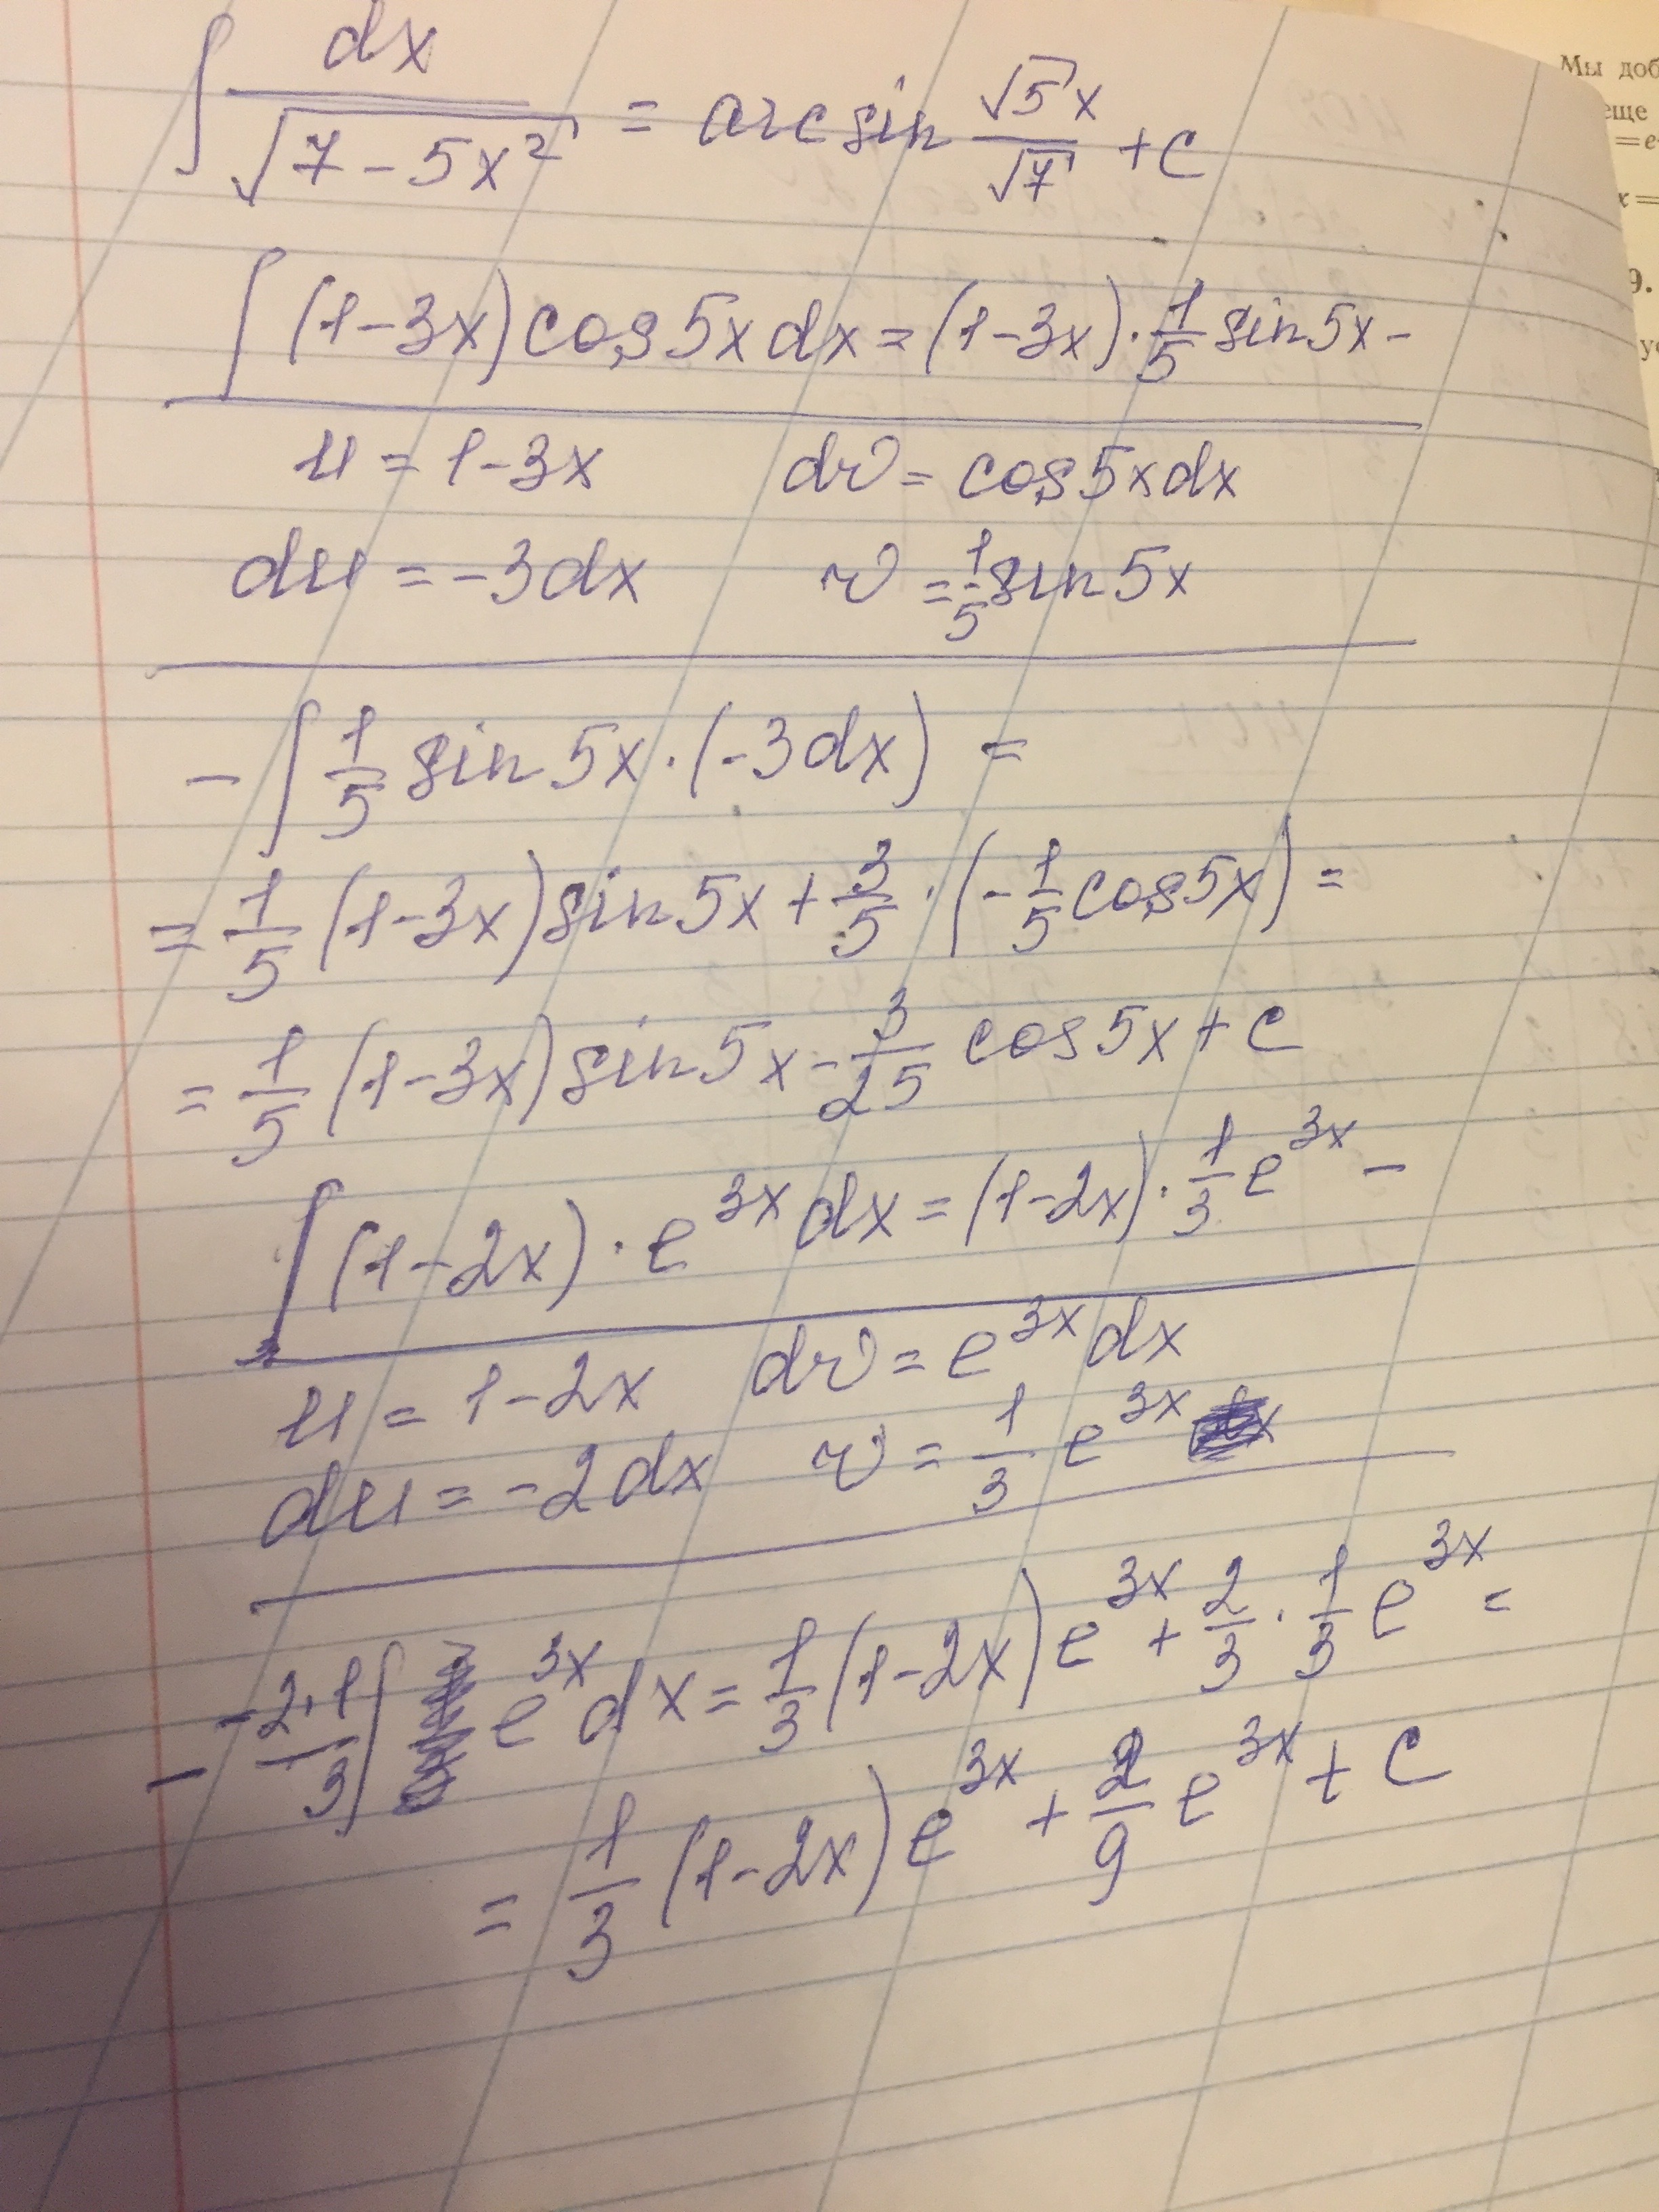 ∫ dx / √(7 - 5x²) = arcsin √5x / √7 + C
∫ (1-3x) cos 5x dx = (1-3x) · 1/5 sin 5x -
u = 1-3x dv = cos 5x dx
du = -3dx v = 1/5 sin 5x
- ∫ 1/5 sin 5x · (-3dx) =
= 1/5 (1-3x) sin 5x + 3/5 · (- 1/5 cos 5x) =
= 1/5 (1-3x) sin 5x - 3/25 cos 5x + C
∫ (1-2x) · e^3x dx = (1-2x) · 1/3 e^3x -
u = 1-2x dv = e^3x dx
du = -2dx v = 1/3 e^3x
- -2·1/3 ∫ e^3x dx = 1/3 (1-2x) e^3x + 2/3 · 1/3 e^3x =
= 1/3 (1-2x) e^3x + 2/9 e^3x + C
Мы доб
еще
=e
x=
9.